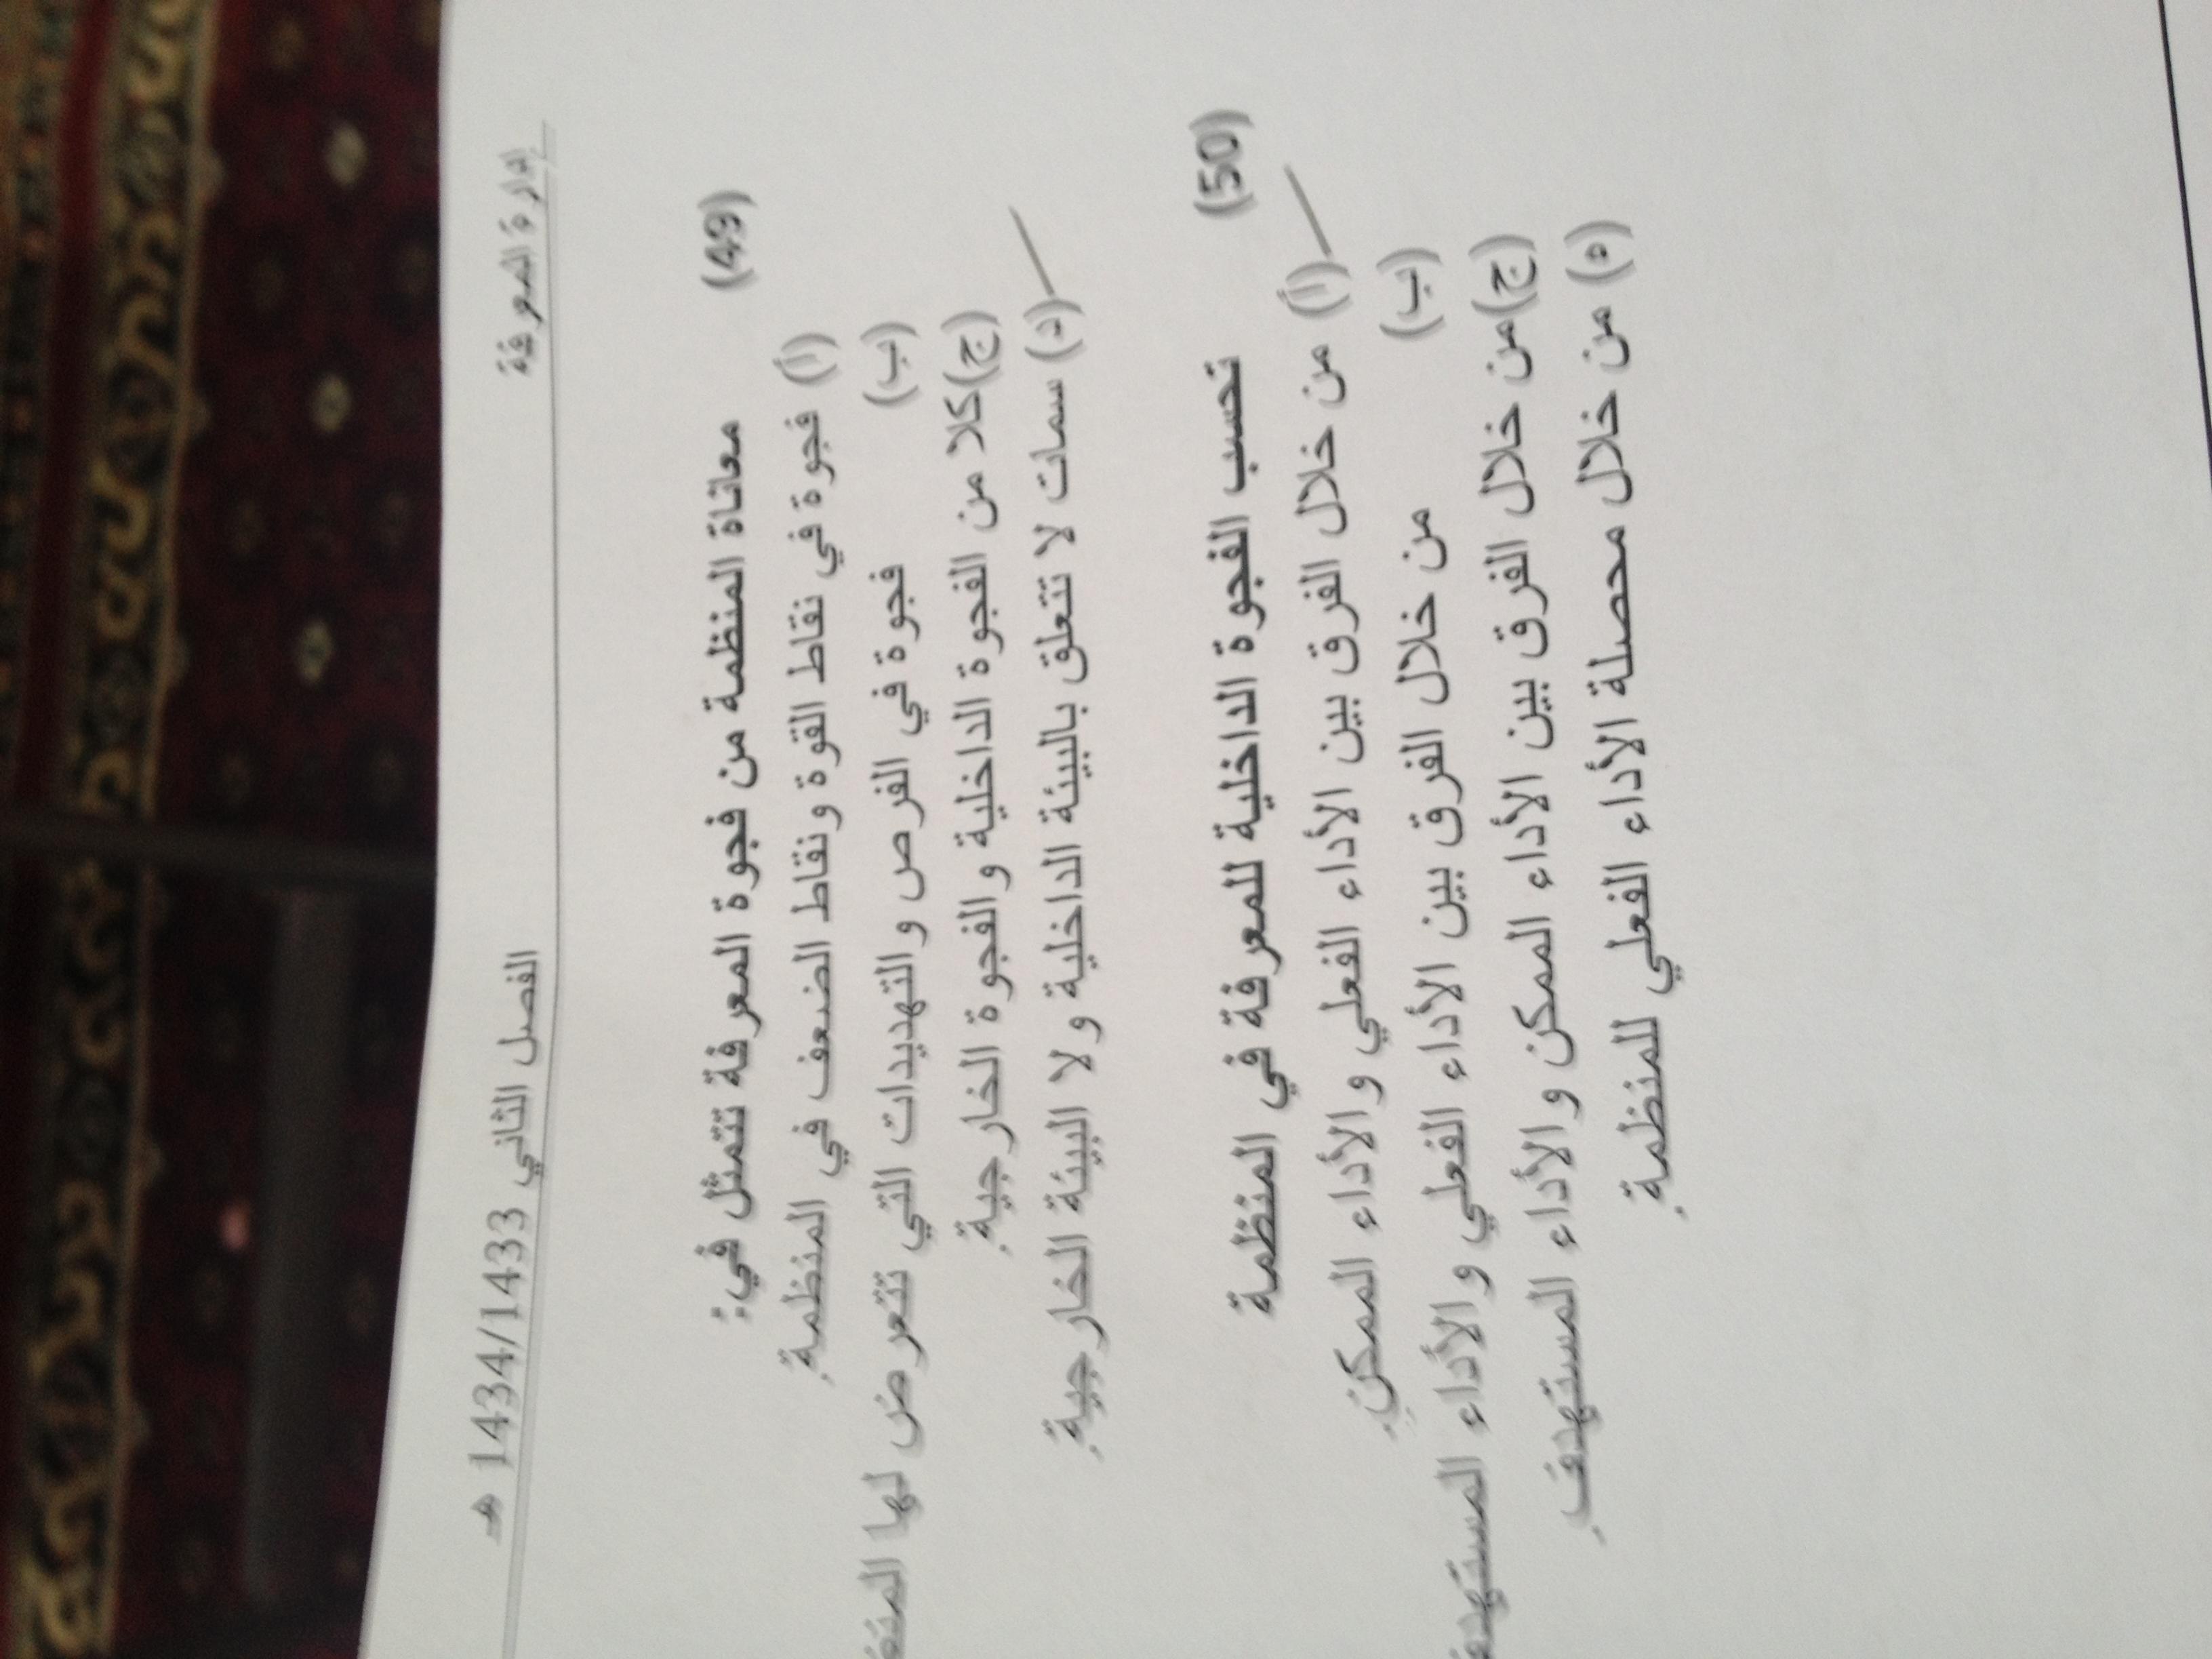 إدارة المعرفة الفصل الثاني 1434/1433 هـ
(49) معاناة المنظمة من فجوة المعرفة تتمثل في:
(أ) فجوة في نقاط القوة ونقاط الضعف في المنظمة.
(ب) فجوة في الفرص والتهديدات التي تتعرض لها
(ج) كلا من الفجوة الداخلية والفجوة الخارجية.
(د) سمات لا تتعلق بالبيئة الداخلية ولا البيئة الخارجية.
(50) تحسب الفجوة الداخلية للمعرفة في المنظمة
(أ) من خلال الفرق بين الأداء الفعلي والأداء الممكن.
(ب) من خلال الفرق بين الأداء الفعلي والأداء
(ج) من خلال الفرق بين الأداء الممكن والأداء المستهدف.
(ه) من خلال محصلة الأداء الفعلي للمنظمة.